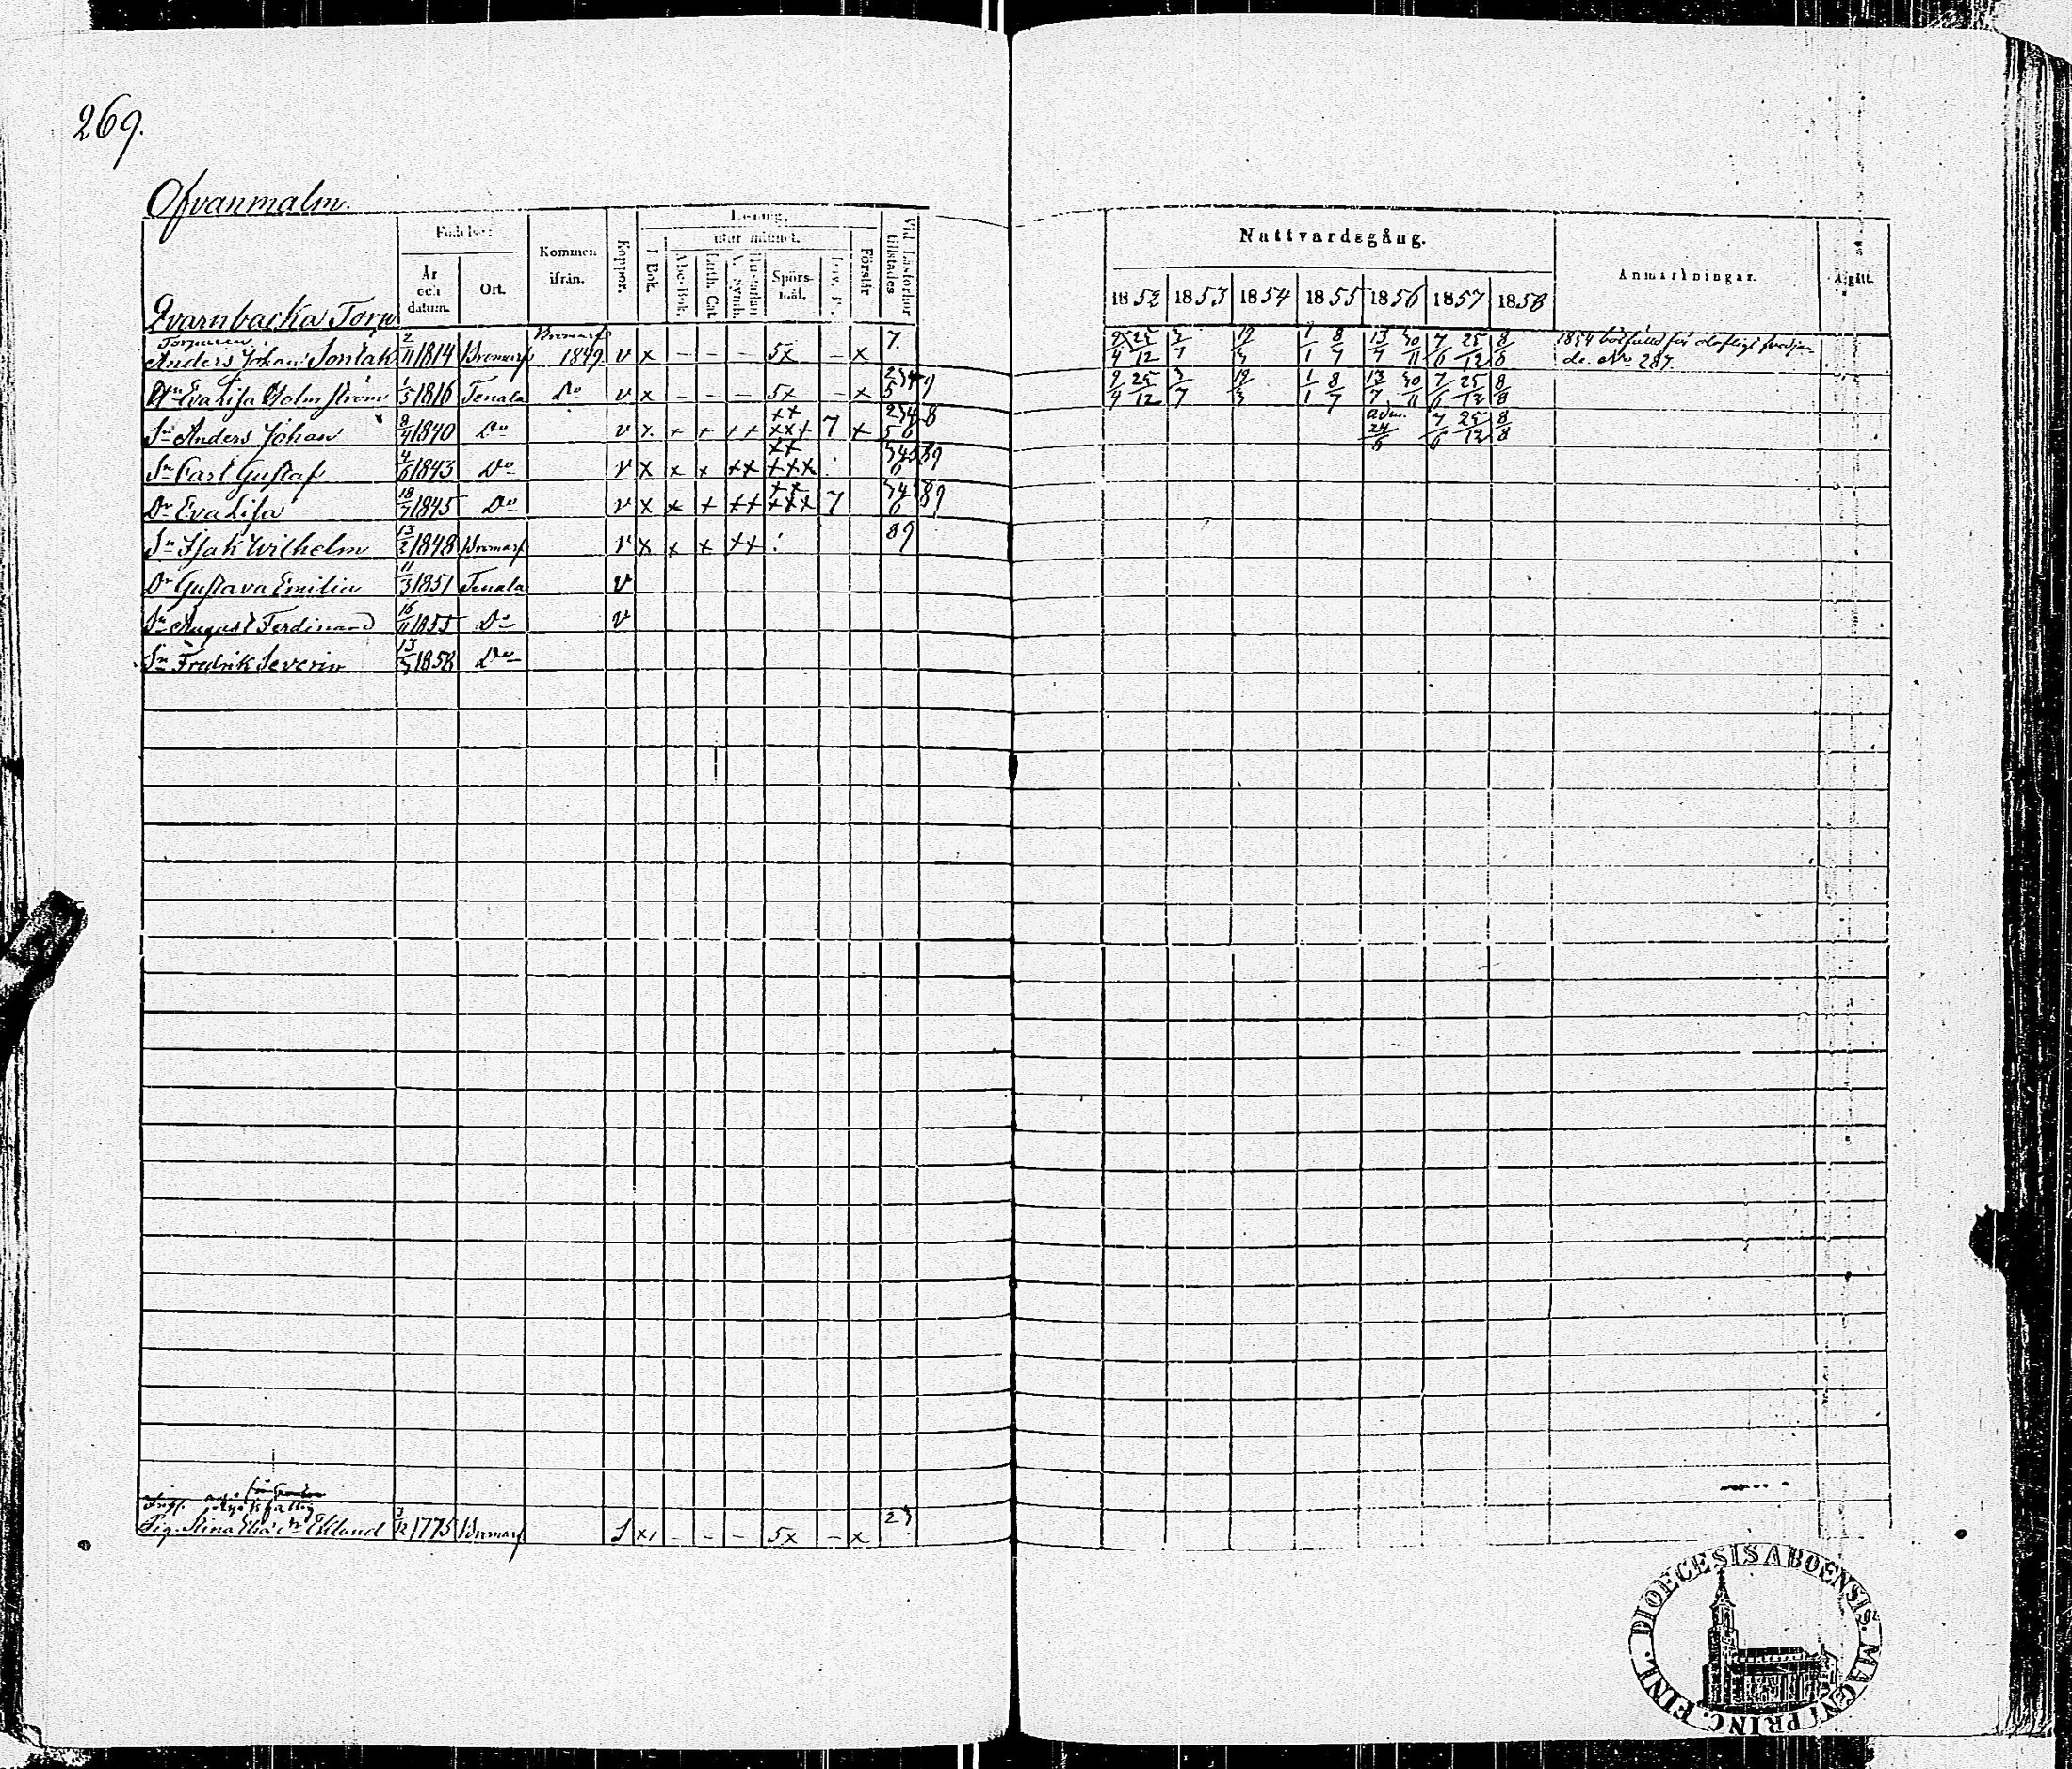 269.
Ofvanmalm.
Födelse:
År och datum.
Ort.
Kommen ifrån.
Koppor.
I Bok.
Läsning,
utur minnet.
Abc-Bok.
Luth. Cat.
A. Symb.
Hustaflan
Spörsmål.
Förstår
Vid Läsförhör tillstädes
Nattvardsgång.
1852 1853 1854 1855 1856 1857 1858
Anmärkningar.
Afgått.
Qvarnbacka Torp
Torparen Bromarf
Anders Johan Sontak 2/11 1814 Bromarf 1849 v x – – – 5x – x 7.
9/4 25/12 3/7 19/3 1/1 8/7 13/7 30/11 7/6 25/12 8/8 1854 bötfälld för olofligt
de. No 287.
Hu Eva Lisa Holmström 1/5 1816 Tenala Do v x – – – 5x – x
9/4 25/12 3/7 19/3 1/1 8/7 13/7 30/11 7/6 25/12 8/8
Sn Anders Johan 8/4 1840 Do v x + + ++ 7 x
adm. 24/6 7/6 25/12 8/8
Sn Carl Gustaf 4/6 1843 Do v x x x xx
Dr Eva Lisa 18/7 1845 Do v x x + ++ 7
Sn Isak Wilhelm 13/2 1848 Bromarf v x x x xx 89
Dr Gustava Emilia 11/3 1851 Tenala v
Sn August Ferdinand 16/11 1855 Do v
Sn Fredrik Severin 13/3 1858 Do
Pig. Stina 1775 Bromarf x1 – – – 5x – x 23
DIOECESIS ABOENSIS. MAGNI PRINC. FINL.